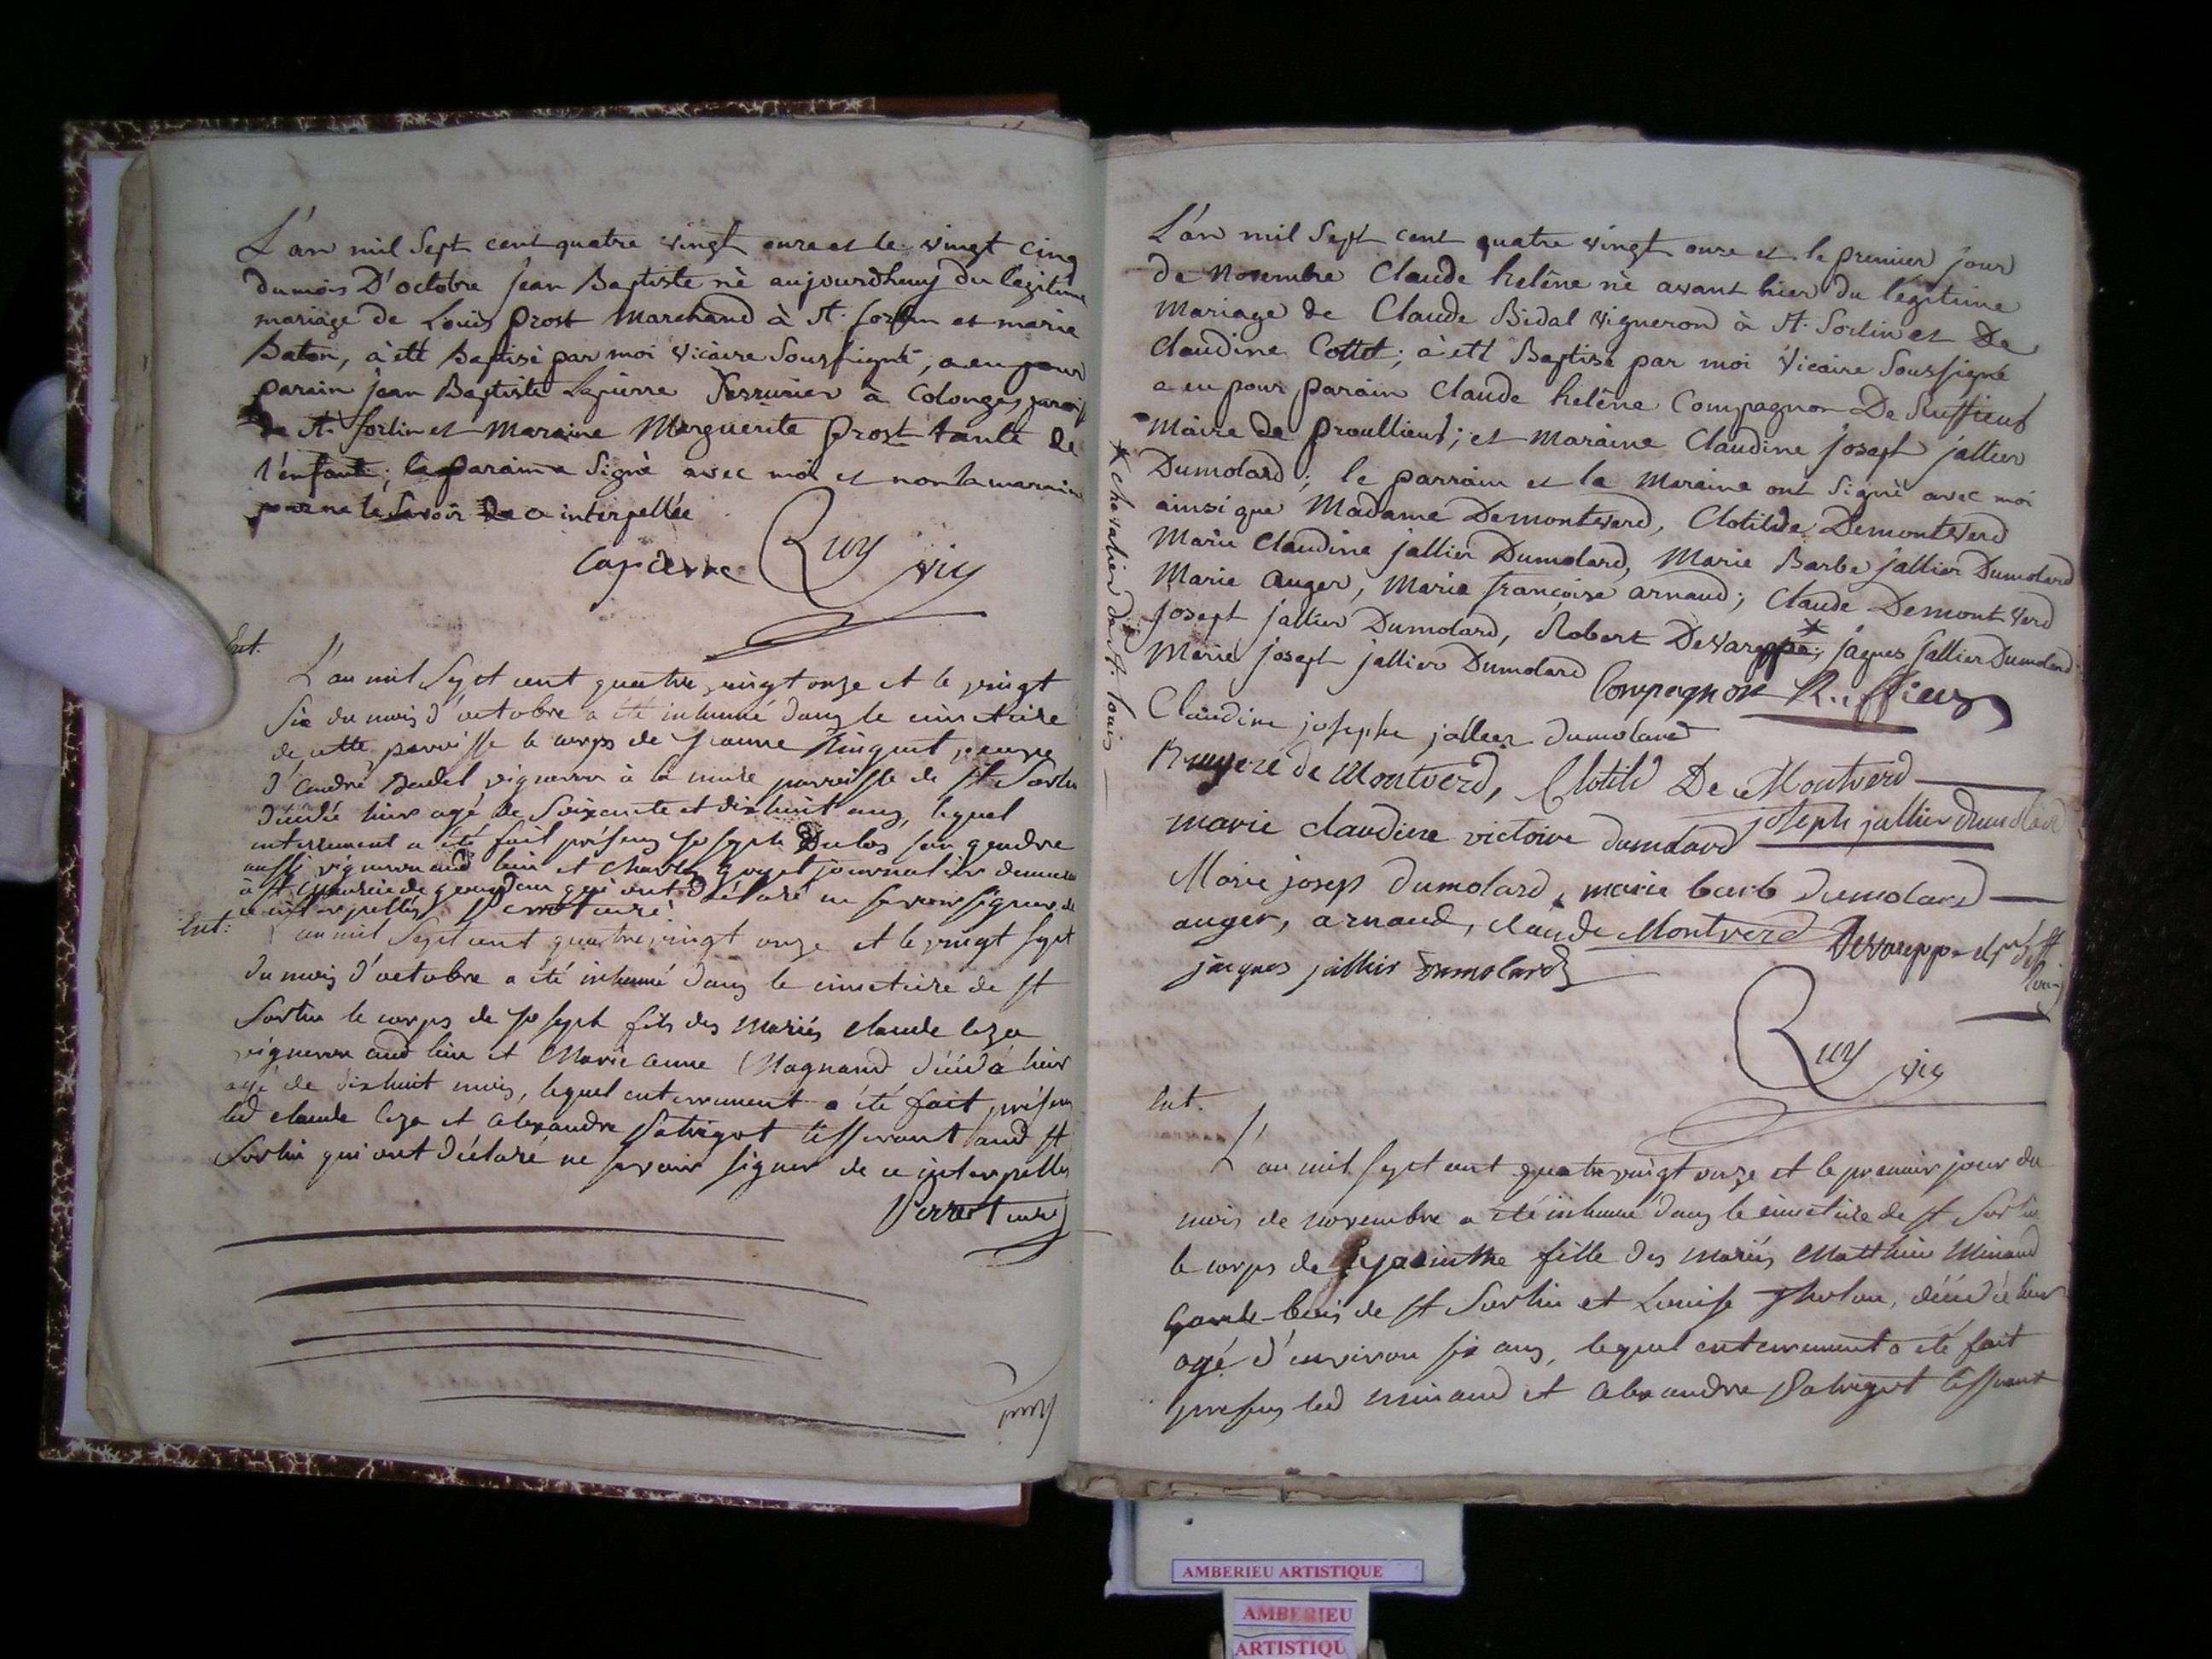 L'an mil Sept cent quatre vingt onze et le vingt cinq
du mois D'octobre jean Baptiste nè aujourdhuy du légitime
mariage de Louis prost Marchand à St. Sorlin et marie
Baton, à été Baptisé par moi vicaire Soussigné, a eu pour
parain jean Baptiste Lapierre Serrurier à Colonges parois
de St. Sorlin et Maraine Marguerite prost tante de
l'enfant; le parain a Signé avec moi et non la maraine
pour ne le Savoir De ce interpellée
Lapierre Ruy vic
Ent.
L'an mil Sept cent quatre vingt onze et le vingt
Six du mois d'octobre a été inhumé dans le cimetiere
de cette paroisse le corps de jeanne veuve
d'andré vigneron à la paroisse de St Sorlin
décédé hier agé de Soixante et dixhuit ans, lequel
enterrement a été fait présens joseph Dulos son gendre
aussi vigneron aud lieu et Charles journalier demeurant
à St qui ont déclaré ne savoir signer de
ce interpellés Perret curé
Ent:
L'an mil Sept cent quatre vingt onze et le vingt sept
du mois d'octobre a été inhumé dans le cimetiere de St
Sorlin le corps de joseph fils des mariés claude
vigneron aud lieu et Marie anne Magnand décédé hier
agé de dixhuit mois, lequel enterrement a été fait présens
led claude et alexandre tisserant aud St
Sorlin qui ont déclaré ne savoir signer de ce interpellés
Perret curé
L'an mil Sept cent quatre vingt onze et le premier jour
de Novembre Claude helêne nè avant hier du légitime
Mariage de Claude Bidal vigneron à St. Sorlin et De
Claudine Cottet; à été Baptisé par moi Vicaire Soussigné
a eu pour parain Claude helêne Compagnon De Ruffieux
Maire de proullieux; et Maraine Claudine joseph jallier
Dumolard; le parrain et la Maraine ont Signé avec moi
ainsi que Madame Demontverd, Clotilde Demontverd
Marie Claudine jallier Dumolard, Marie Barbe jallier Dumolard
Marie auger, Marie françoise arnaud; Claude Demontverd
joseph jallier Dumolard, Robert Devareppe*, jaques jallier Dumolard
Marie joseph jallier Dumolard
* chevalier de St. louis
Compagnon Ruffieux
Claudine josephe jallier dumolard
Bruyere de Montverd, Clotild De Montverd
marie claudine victoire dumolard joseph jallier dumolard
Marie joseph dumolard, marie barb dumolard
auger, arnaud, claude Montverd Devareppe chr de St
louis
jacques jallier dumolard
Ruy vic
Ent.
L'an mil Sept cent quatre vingt onze et le premier jour du
mois de novembre a été inhumé dans le cimetiere de St Sorlin
le corps de hyacinthe fille des mariés Matthieu Minand
garde-bois de St Sorlin et Louise décédé hier
agé d'environ six ans, lequel enterrement a été fait
présens led minand et alexandre tisserant
AMBERIEU ARTISTIQUE
AMBERIEU
ARTISTIQU